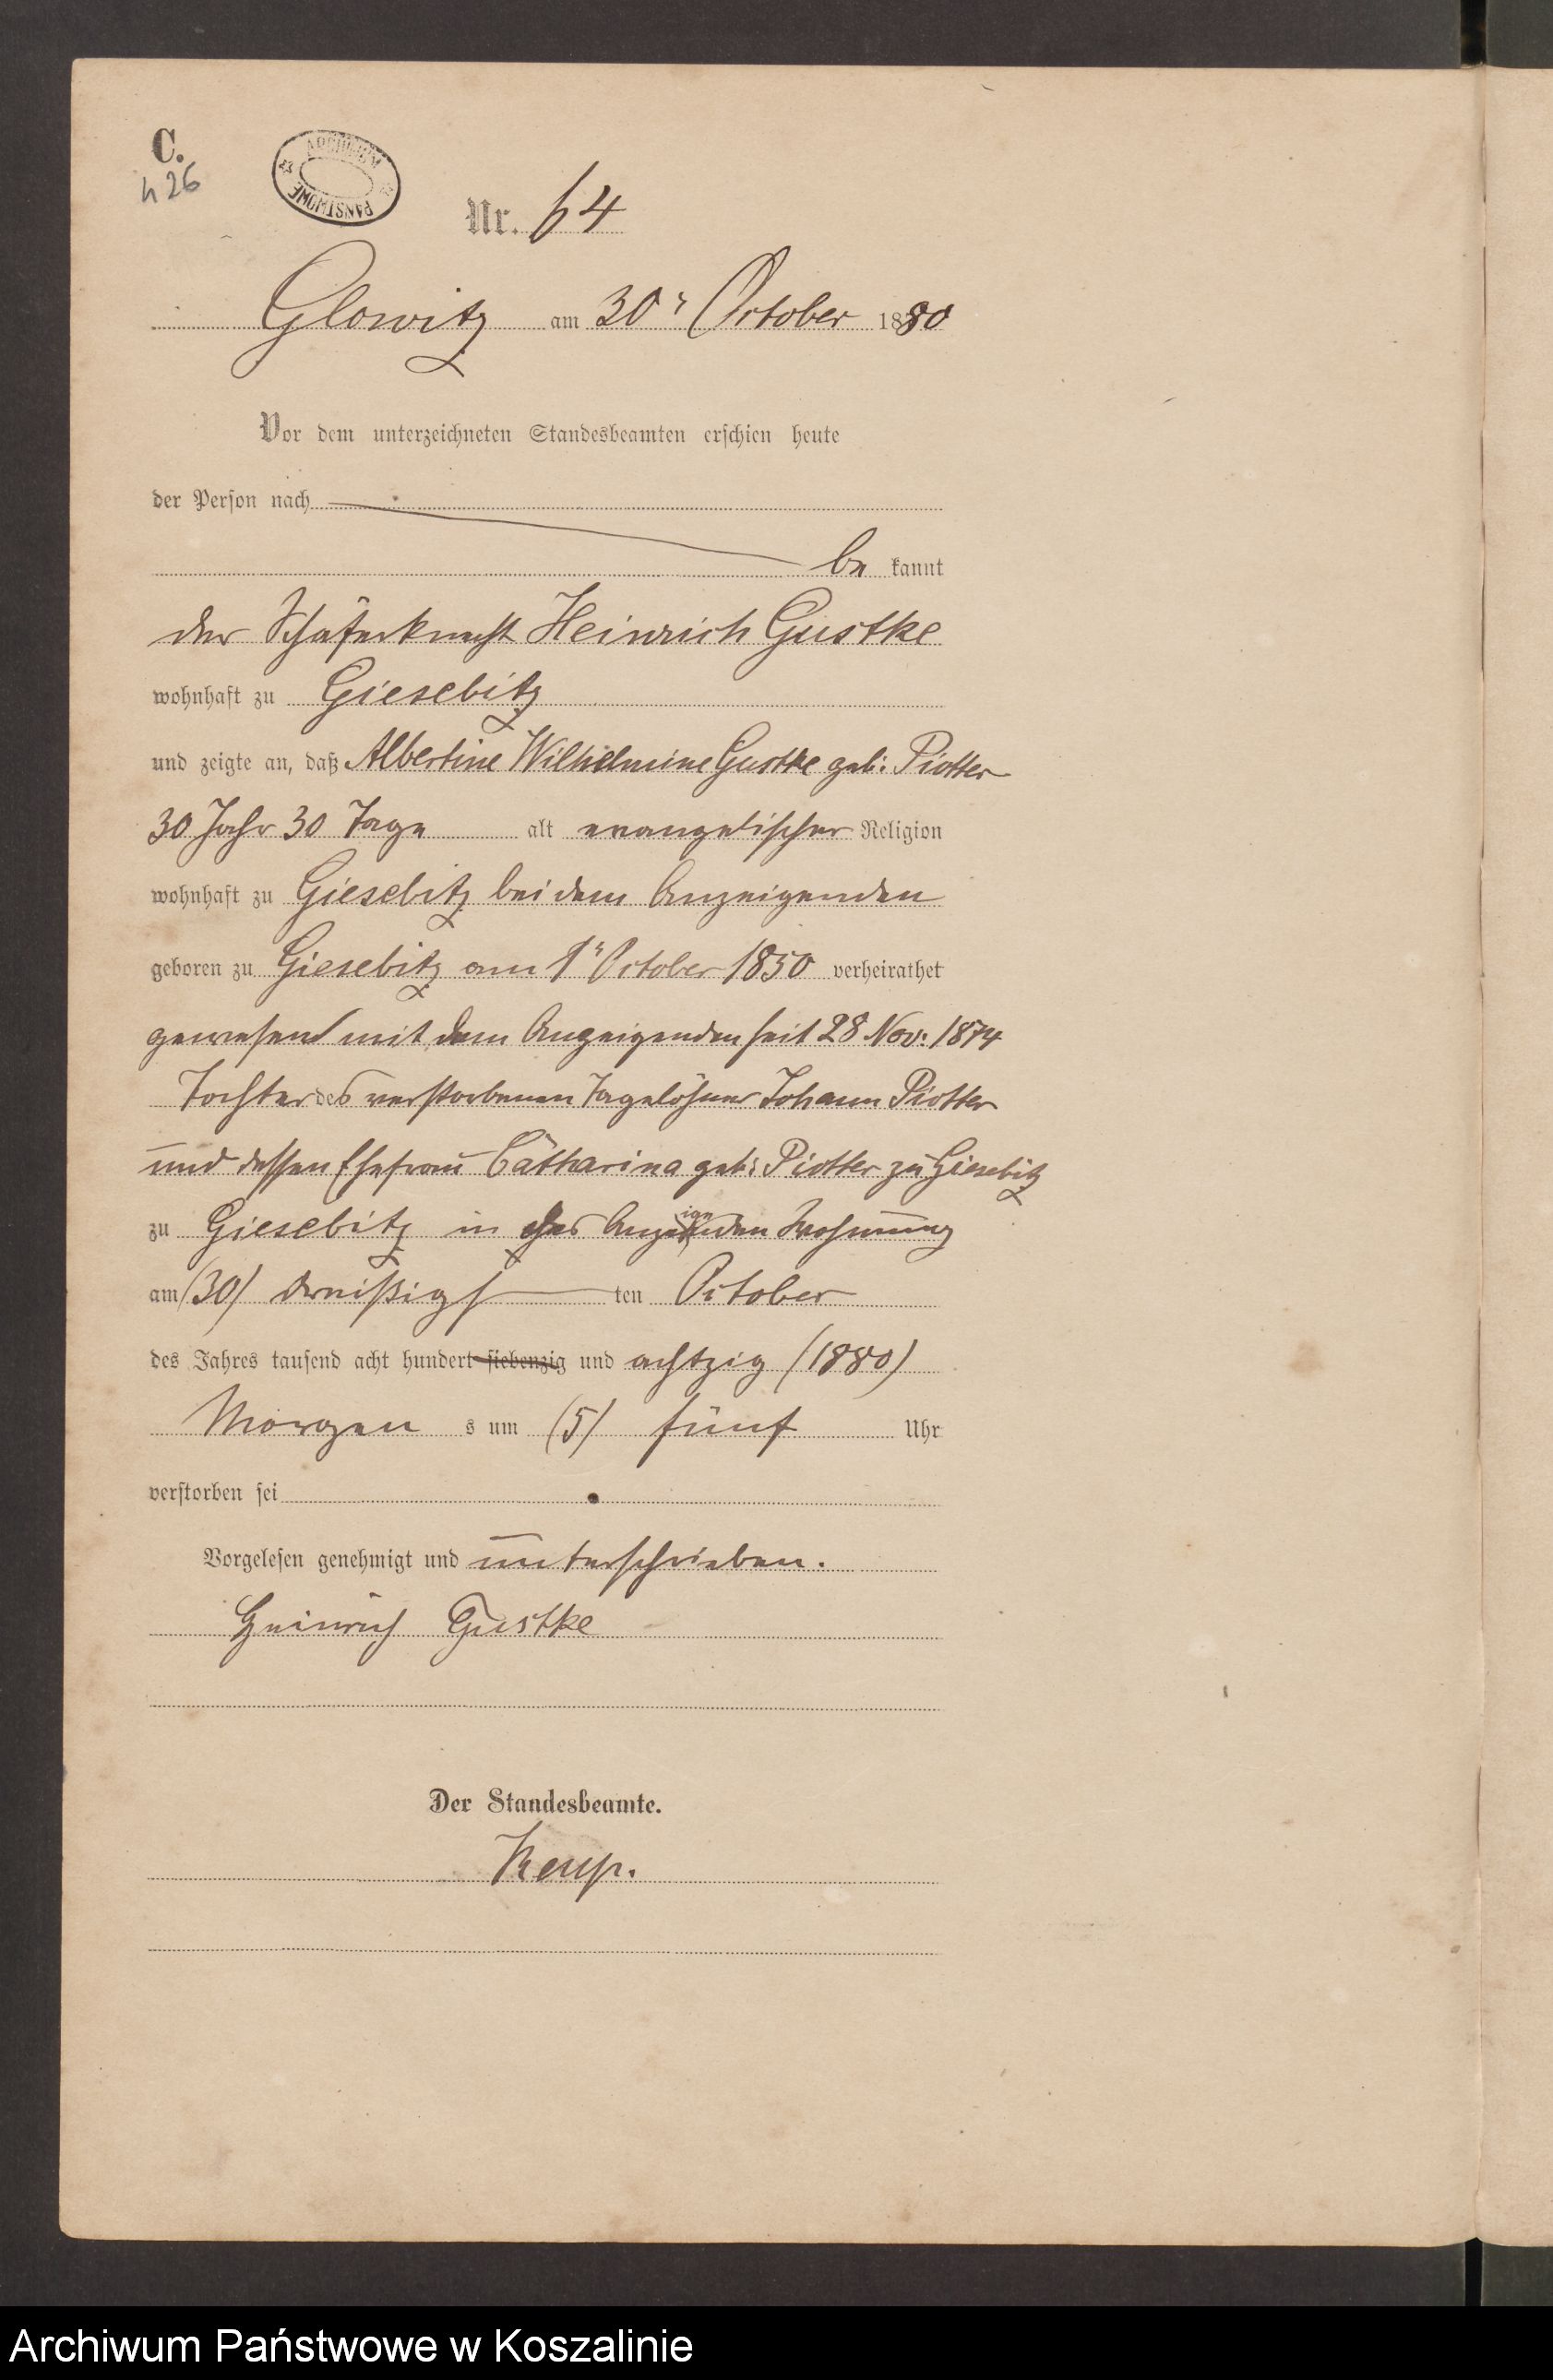 C.
h 26
ARCHIWUM
PAŃSTWOWE
Nr. 64
Glowitz am 30ᵗ October 1880
Vor dem unterzeichneten Standesbeamten erschien heute
der Person nach
be kannt
der Schäferknecht Heinrich Gustke
wohnhaft zu Giesebitz
und zeigte an, daß Albertine Wilhelmine Gustke geb: Piotter
30 Jahr 30 Tage alt evangelischer Religion
wohnhaft zu Giesebitz bei dem Anzeigenden
geboren zu Giesebitz am 1ᵗ October 1850 verheirathet
gewesen mit dem Anzeigenden seit 28 Nov: 1874
Tochter des verstorbenen Tagelöhner Johann Piotter
und dessen Ehefrau Catharina geb: Piotter zu Giesebitz
zu Giesebitz in des Anzeigenden Wohnung
am (30) dreißigs ten October
des Jahres tausend acht hundert siebenzig und achtzig (1880)
Morgen s um (5) fünf Uhr
verstorben sei
Vorgelesen genehmigt und unterschrieben.
Heinrich Gustke
Der Standesbeamte.
Archiwum Państwowe w Koszalinie